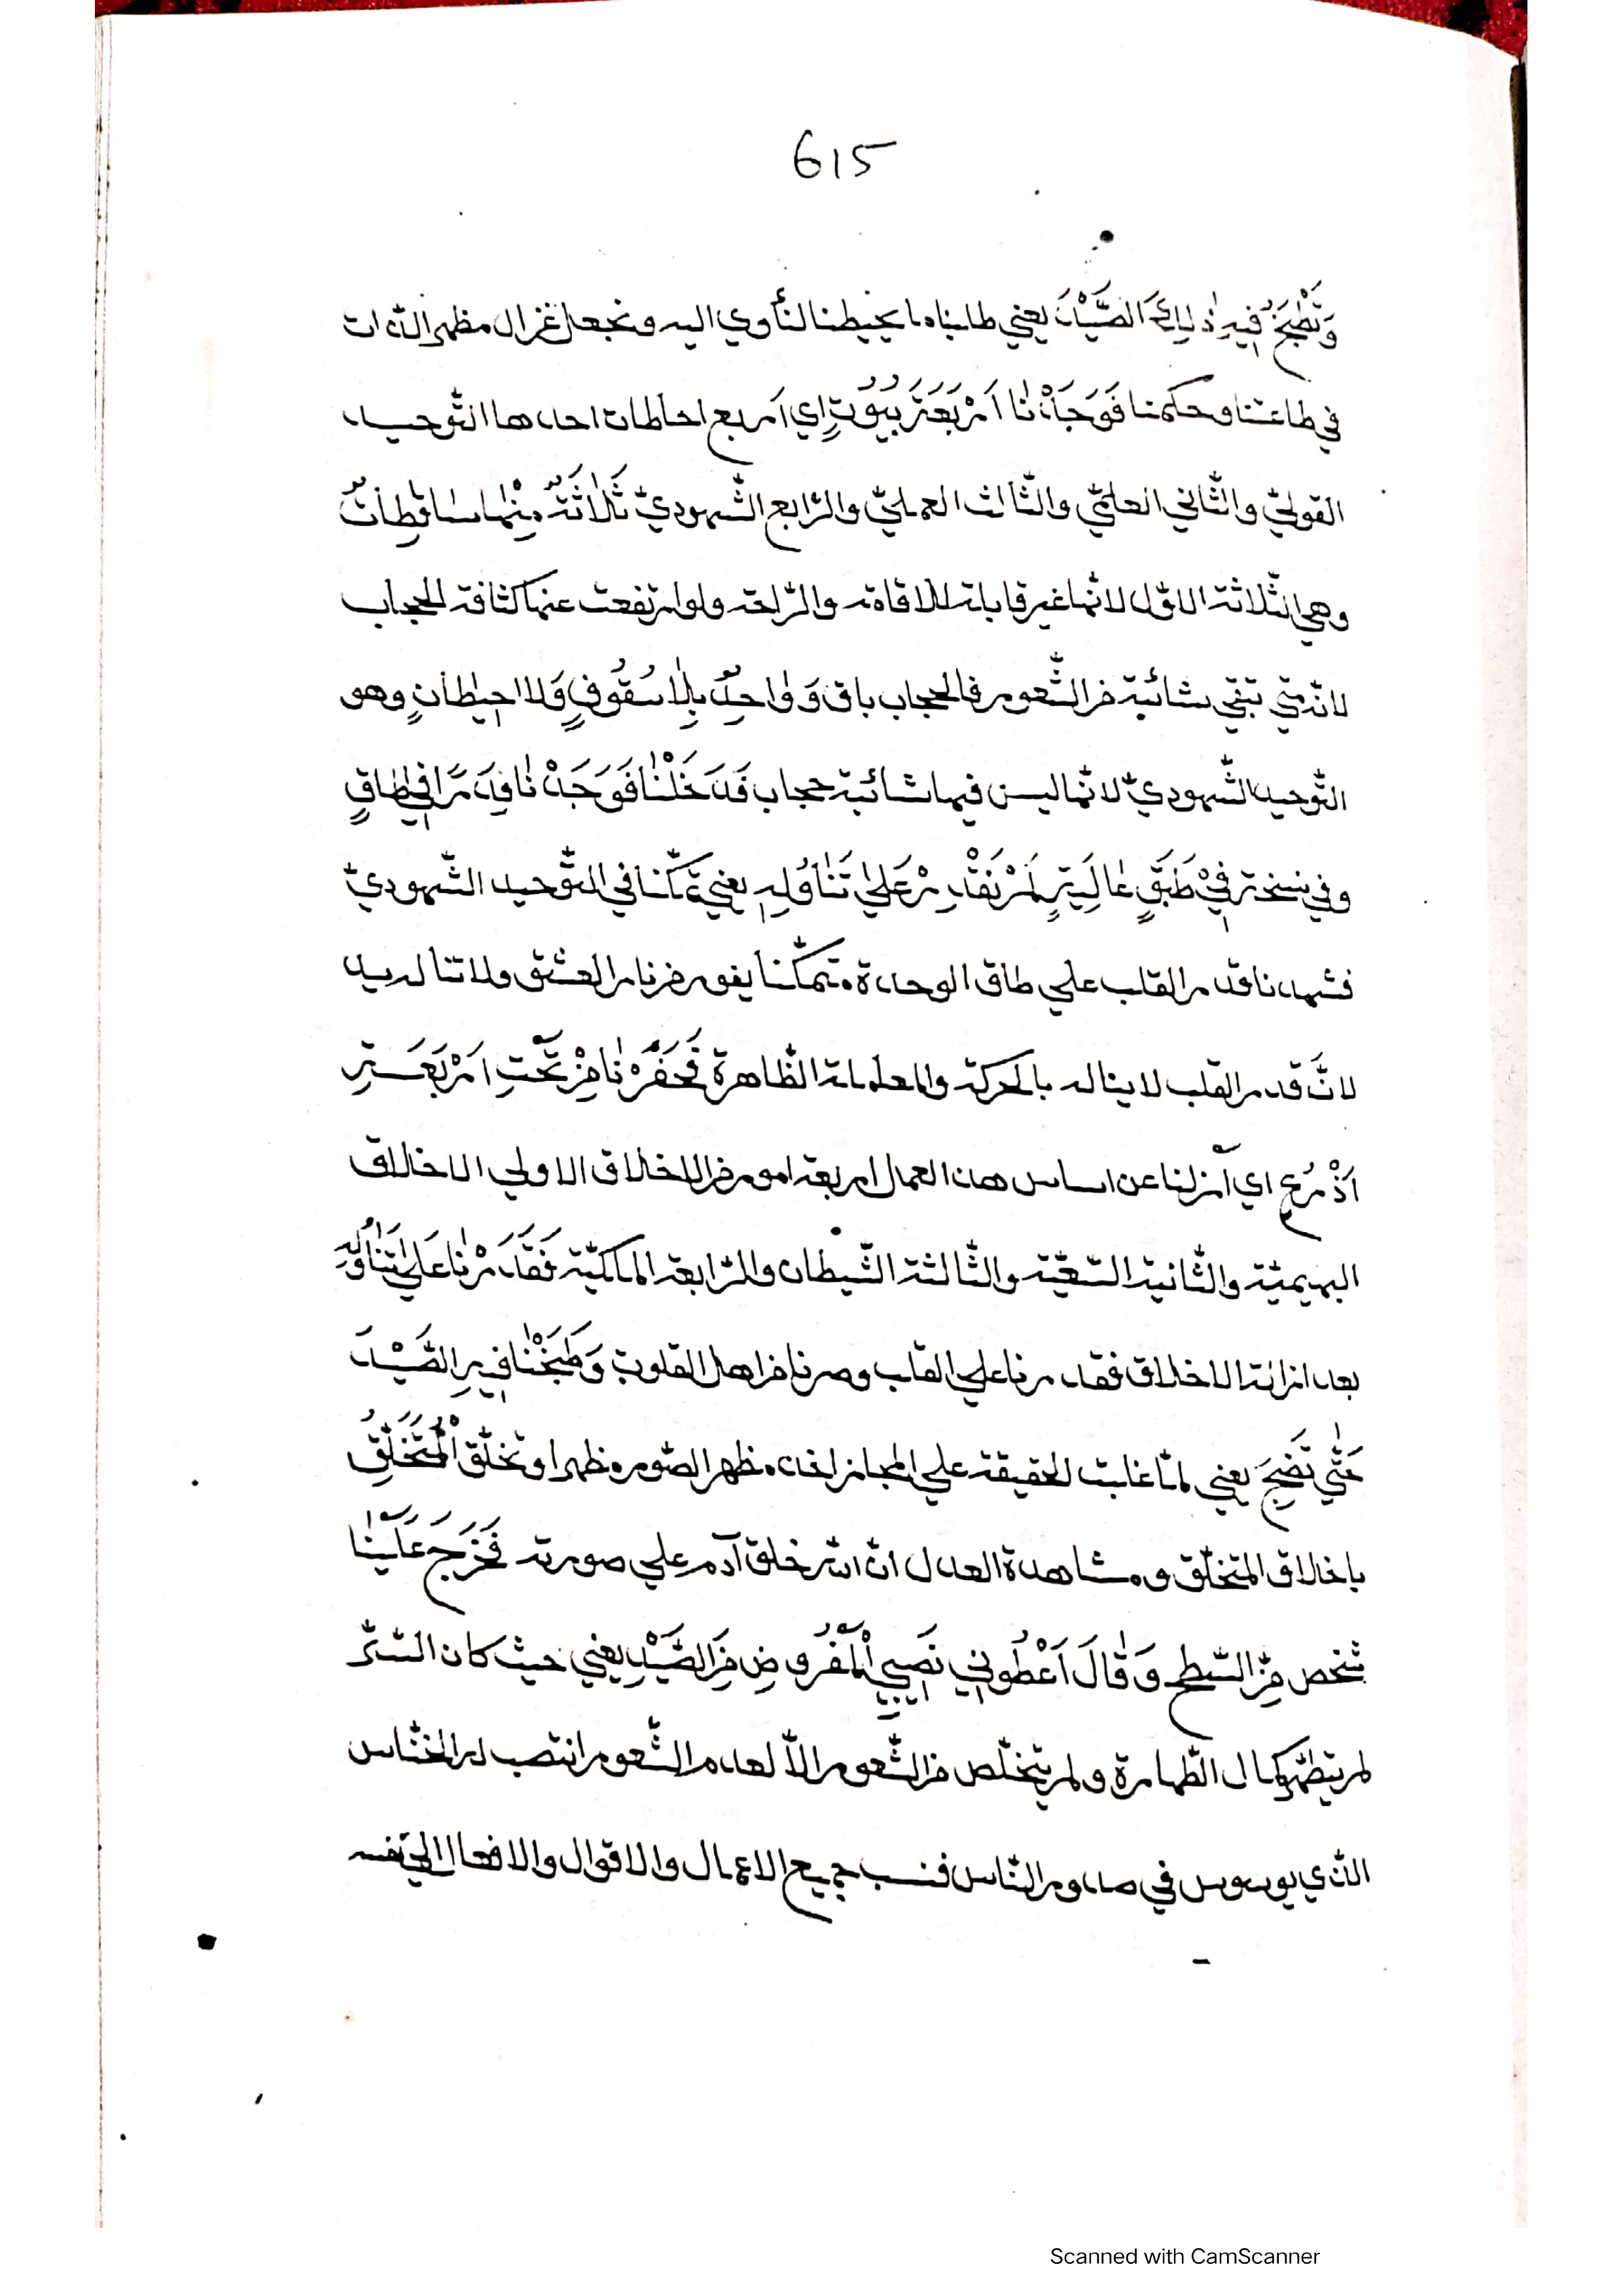 615
وَنَطْبَخُ فِيهِ ذٰلِكَ الصَّيْدَ يعني طلبنا ما يحيطنا لنأوي اليه ونجعل غزال مظهر الذات
في طاعتنا وحكمنا فَوَجَدْنٰا اَرْبَعَةَ بُيُوْتٍ اي اربع احاطات احدها التّوحيد
القوليّ والثّاني العلميّ والثّالث العمليّ والرّابع الشّهوديّ ثَلٰاثَةٌ مِنْهٰا سٰاقِطٰاتٌ
وهي الثّلاثة الاوّل لانّها غير قابلة للاقامة والرّاحة ولو ارتفعت عنها كثافة الحجاب
لانّه متي تبقي شائبة من الشّعور فالحجاب باق وَوٰاحِدٌ بِلٰا سُقُوفٍ وَلٰا حِيْطٰانٍ وهو
التّوحيد الشّهوديّ لانّها ليس فيها شائبة حجاب فَدَخَلْنٰا فَوَجَدْنٰا قِدْرًا فِي طٰاقٍ
وفي نسخة فِيْ طَبَقٍ عٰالِيَةٍ لَمْ نَقْدِرْ عَلٰي تَنٰاوُلِهِ يعني تمكّنّا في التّوحيد الشّهوديّ
فشهدنا قدر القلب علي طاق الوحدة متمكّنا يفور من نار العشق ولا تناله يد
لانّ قدر القلب لا يناله بالحركة والمعاملة الظّاهرة فَحَفَرْنٰا مِنْ تَحْتِهِ اَرْبَعَةِ
اَذْرُعٍ اي انزلنا عن اساس هذا العمال اربعة امور من الاخلاق الاولي الاخلاق
البهيميّة والثّانية السّبعيّة والثّالثة الشّيطان والرّابعة الملكيّة فَقَدَرْنٰا عَلٰي تَنٰاوُلِهِ
بعد ازالة الاخلاق فقدرنا علي القلب وصرنا من اهل القلوب وَطَبَخْنٰا فِيهِ الصَّيْدَ
حَتّٰي نَضِجَ يعني لمّا غلبت الحقيقة علي المجاز اخذ مظهر الصّور مظهرا وتخلّق الْمُتَخَلِّقُ
باخلاق المتخلّق ومشاهدة العدل انّ الله خلق آدم علي صورته فَخَرَجَ عَلَيْنٰا
شخص مِنَ السّطح وَقٰالَ اَعْطُونِي نَصِيبِي الْمَفْرُوضِ مِنَ الصَّيْدِ يعني حيث كان السّرّ
لم يتطهّر كمال الطّهارة ولم يتخلّص من الشّعور الّا لعدم الشّعور انتصب له الخنّاس
الذي يوسوس في صدور النّاس فنسب جميع الاعمال والاقوال والافعال الي نفسه
Scanned with CamScanner